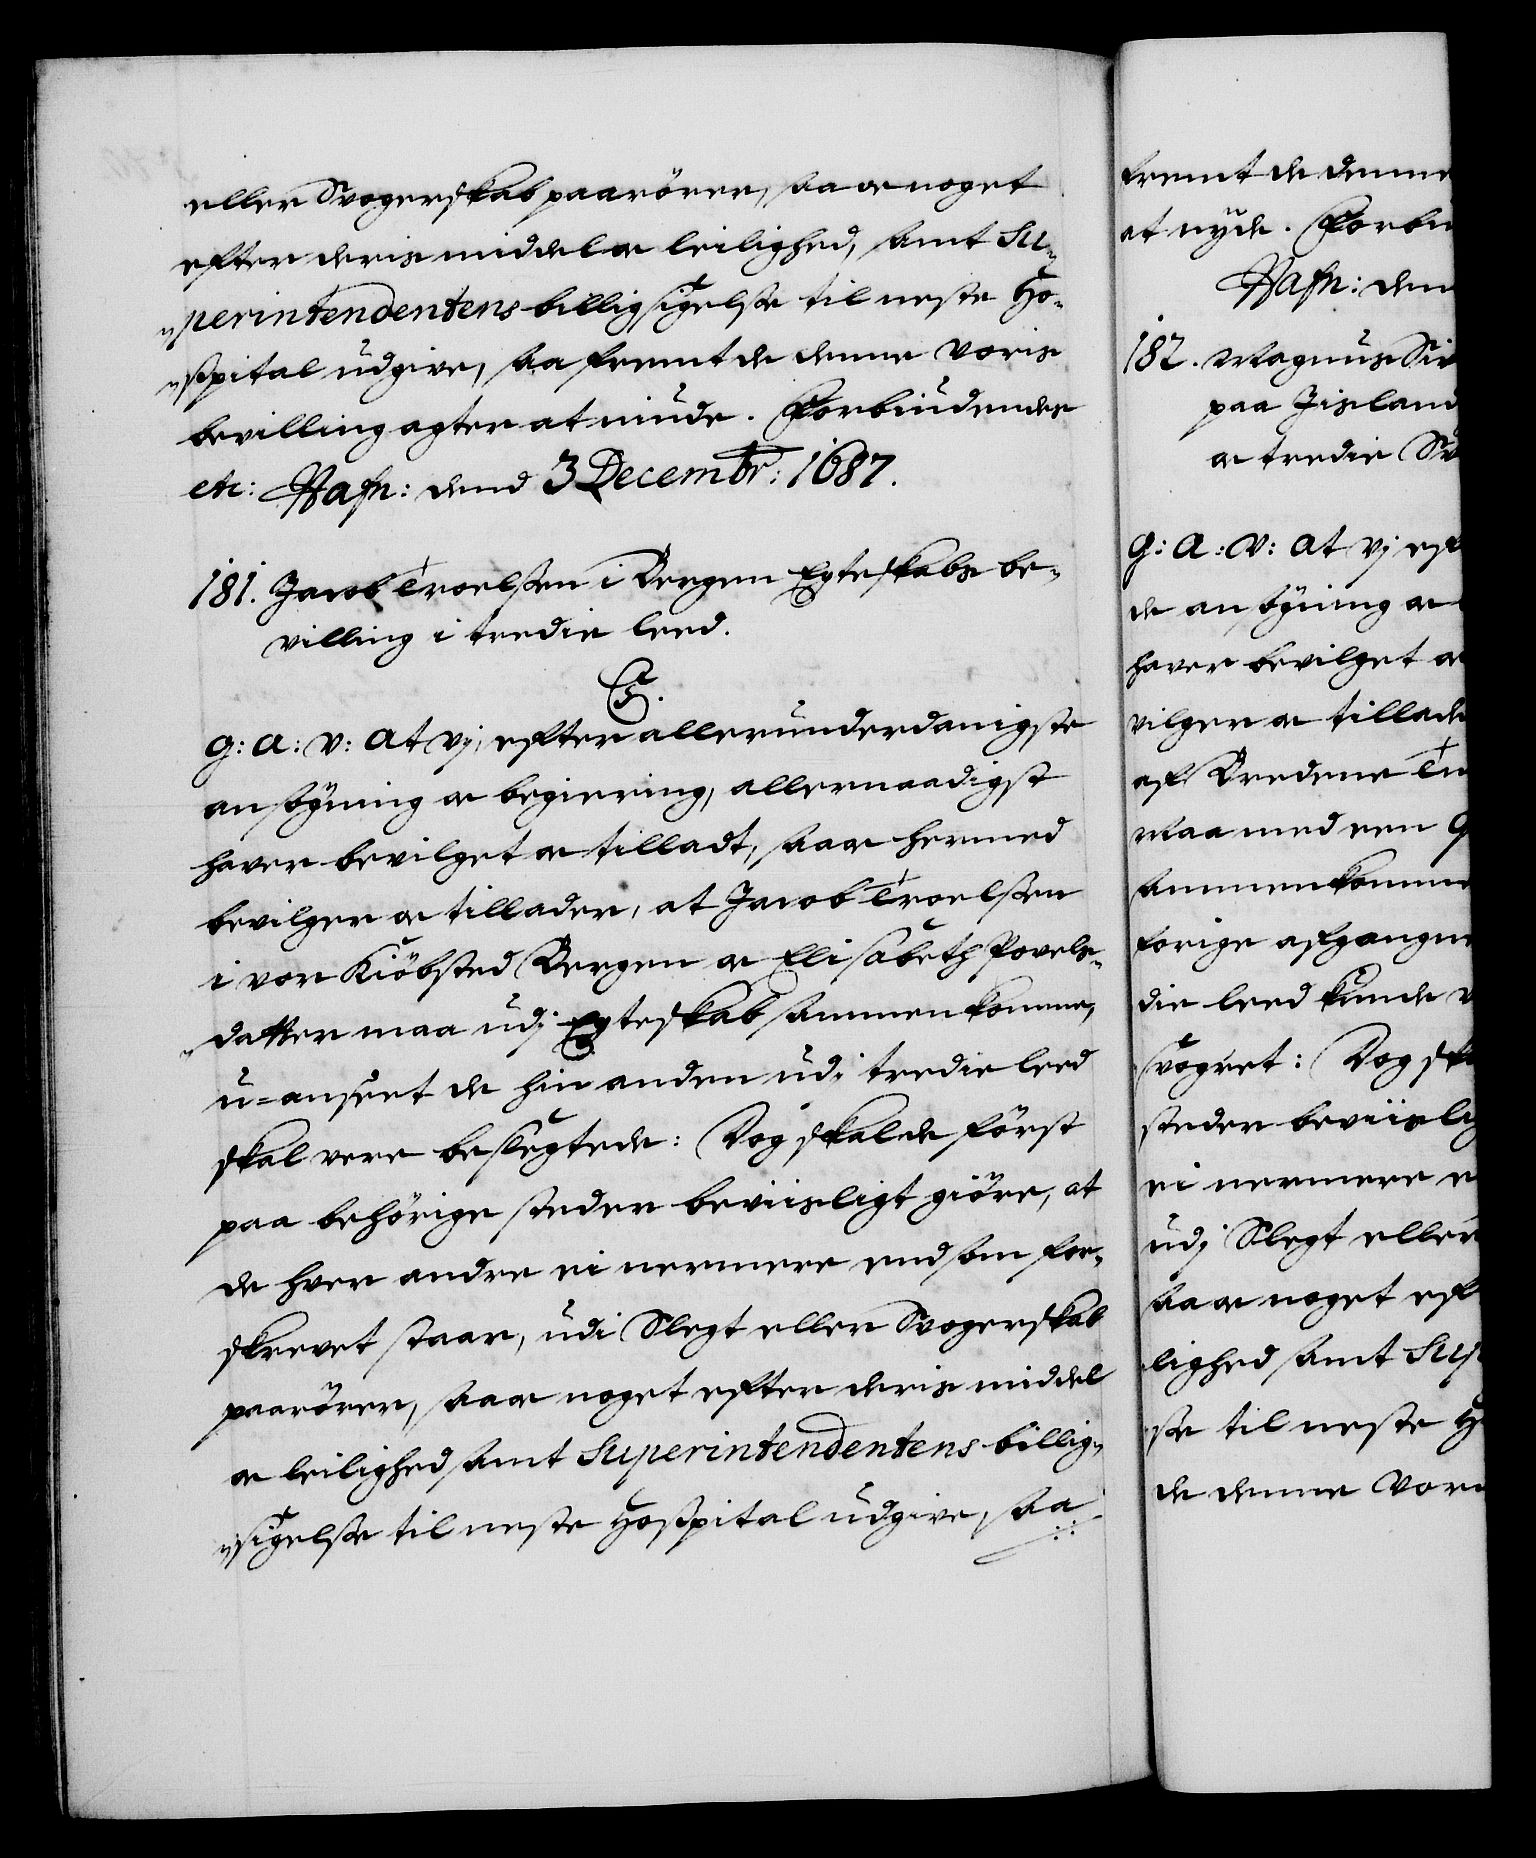 eller Svogerskab paarörer, saa oc noget
efter deris middel oc leilighed, samt Su-
perintendentens billigsigelse til neste Ho-
spital udgive, saa fremt de denne Voris
bevilling agter at niude. Forbiudendes
etc: Hafn: dend 3 Decembr: 1687.
181. Jacob Troelssen i Bergen Egteskabs be-
villing i tredie leed.
C5.
G: A: V: At Vj, efter allerunderdanigste
ansögning oc begiering, allernaadigst
haver bevilget oc tilladt, saa oc hermed
bevilger oc tillader, at Jacob Troelssen
i vor Kiöbsted Bergen oc Elisabeth Povels-
datter maa udj Egteskab sammenkomme,
u-anseet de hin anden udi tredie leed
skal vere beslegtede: Dog skal de först
paa behörige steder beviisligt giöre, at
de hver andre ei nermere end som for-
skrevet staar, udi Slegt eller Svogerskab
paarörer, saa oc noget efter deris middel
oc leilighed samt Superintendentens billig-
sigelse til neste Hospital udgive, saa
fremt de denne
at nyde. Forbiu
Hafn: den
182. Magnus Si
paa Iisland
oc tredie Sv
G: A: V: At Vj ef
de ansögning oc
haver bevilget oc
vilger oc tillade
af Bredene
Maa med een
sammenkomme
forige afgangne
die leed kunde v
svogret: Dog ska
steder beviislig
ei nermere e
udj Slegt eller
saa oc noget eft
lighed samt Sup
se til neste H
de denne Vor